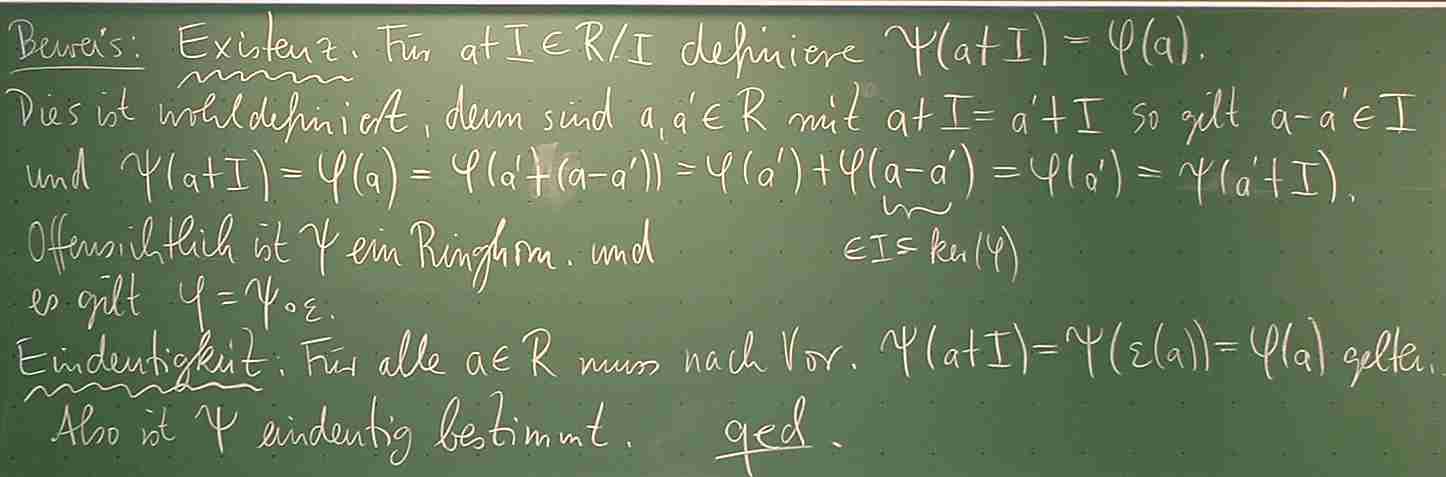 Beweis: Existenz. Für a+I ∈ R/I definiere Ψ(a+I) = φ(a).
Dies ist wohldefiniert, denn sind a, a' ∈ R mit a+I = a'+I so gilt a-a' ∈ I
und Ψ(a+I) = φ(a) = φ(a'+(a-a')) = φ(a')+φ(a-a') = φ(a') = Ψ(a'+I).
∈ I ⊆ ker(φ)
Offensichtlich ist Ψ ein Ringhom. und
es gilt φ = Ψ∘ε.
Eindeutigkeit. Für alle a ∈ R muss nach Vor. Ψ(a+I) = Ψ(ε(a)) = φ(a) gelten.
Also ist Ψ eindeutig bestimmt. qed.